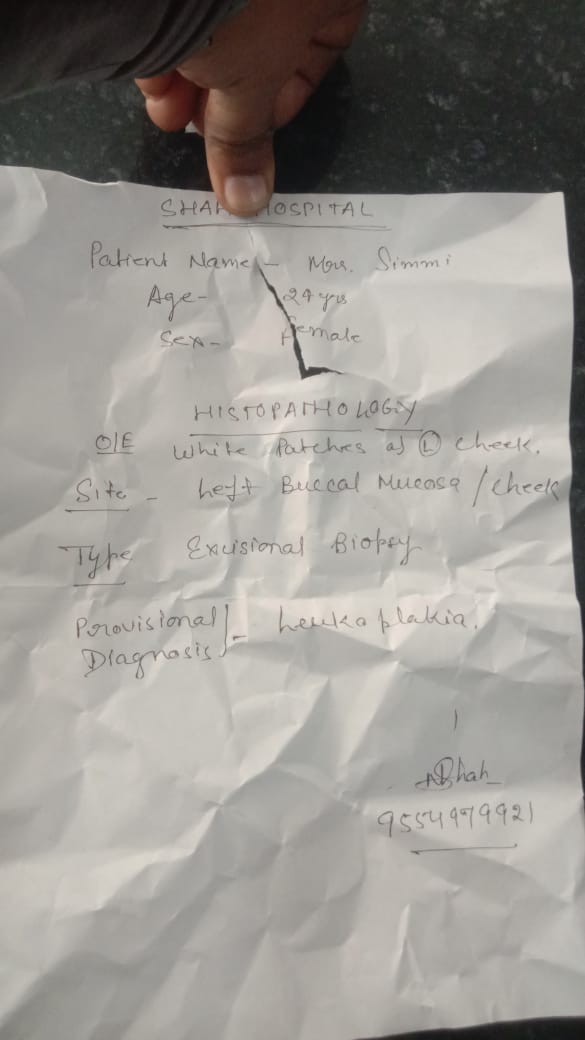 SHAH HOSPITAL
Patient Name - Mrs. Simmi
Age - 24 yrs
Sex - Female
HISTOPATHOLOGY
O/E White Patches as Ⓛ cheek.
Site - Left Buccal Mucosa / Cheek
Type Excisional Biopsy
Provisional Diagnosis - Leukoplakia.
Shah
9554979921